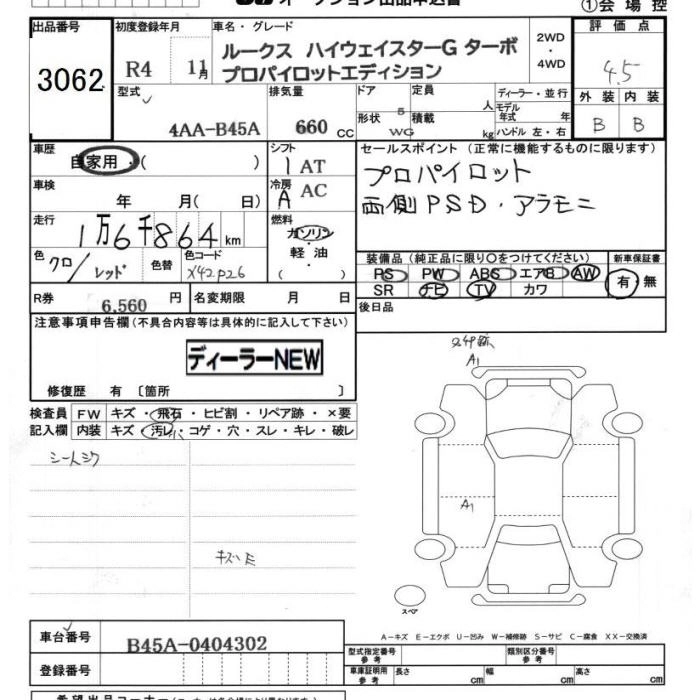 オークション出品申込書
①会場控
出品番号 初度登録年月 車名・グレード 評価点
3062
R4 11月
ルークス ハイウェイスターG ターボ
プロパイロットエディション
2WD
・
4WD
4.5
型式 排気量 ドア 定員 ディーラー・並行 外装 内装
4AA-B45A 660 CC
5 人 モデル年式 年
形状 積載
WG kg ハンドル 左・右
B B
車歴 シフト セールスポイント (正常に機能するものに限ります)
自家用・( ) 1 AT
プロパイロット
車検 冷房
年 月(日) A AC
両側PSD・アラモニ
走行 燃料
1万6千864 km
ガソリン
・
軽油
( )
色 色替 色コード
クロ/レッド X42P26
装備品 (純正品に限り〇をつけてください) 新車保証書
PS PW ABS エアB AW 有・無
SR ナビ TV カワ
R券 6,560 円 名変期限 月 日
後日品
注意事項申告欄(不具合内容等は具体的に記入して下さい)
ディーラーNEW
修復歴 有〔箇所 〕
検査員 FW キズ・飛石・ヒビ割・リペア跡・×要
記入欄 内装 キズ・汚レ・コゲ・穴・スレ・キレ・破レ
A1
A1
スペア
A-キズ E-エクボ U-凹み W-補修跡 S-サビ C-腐食 XX-交換済
車台番号 B45A-0404302
型式指定番号 参考 類別区分番号 参考
登録番号
車庫証明用 参考 長さ cm 幅 cm 高さ cm